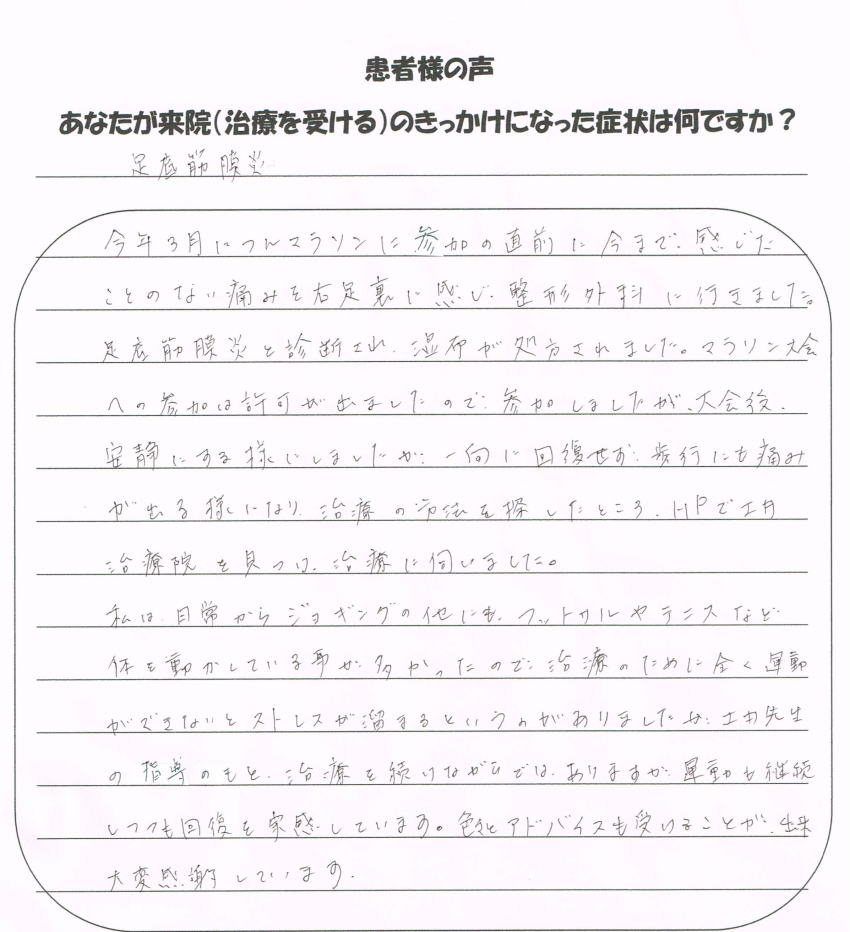 患者様の声
あなたが来院（治療を受ける）のきっかけになった症状は何ですか？
足底筋膜炎
今年3月にフルマラソンに参加の直前に今まで感じた
ことのない痛みを右足裏に感じ、整形外科に行きました。
足底筋膜炎と診断され、湿布が処方されました。マラソン大会
への参加は許可が出ましたので、参加しましたが、大会後、
安静にする様にしましたが、一向に回復せず、歩行にも痛み
が出る様になり、治療の方法を探したところ、HPで土井
治療院を見つけ、治療に伺いました。
私は、日常からジョギングの他にも、フットサルやテニスなど
体を動かしている事が多かったので、治療のために全く運動
ができないとストレスが溜まるというのがありましたが、土井先生
の指導のもと、治療を続けながらでは、ありますが、運動も継続
しつつも回復を実感しています。色々とアドバイスも受けることが、出来
大変感謝しています。